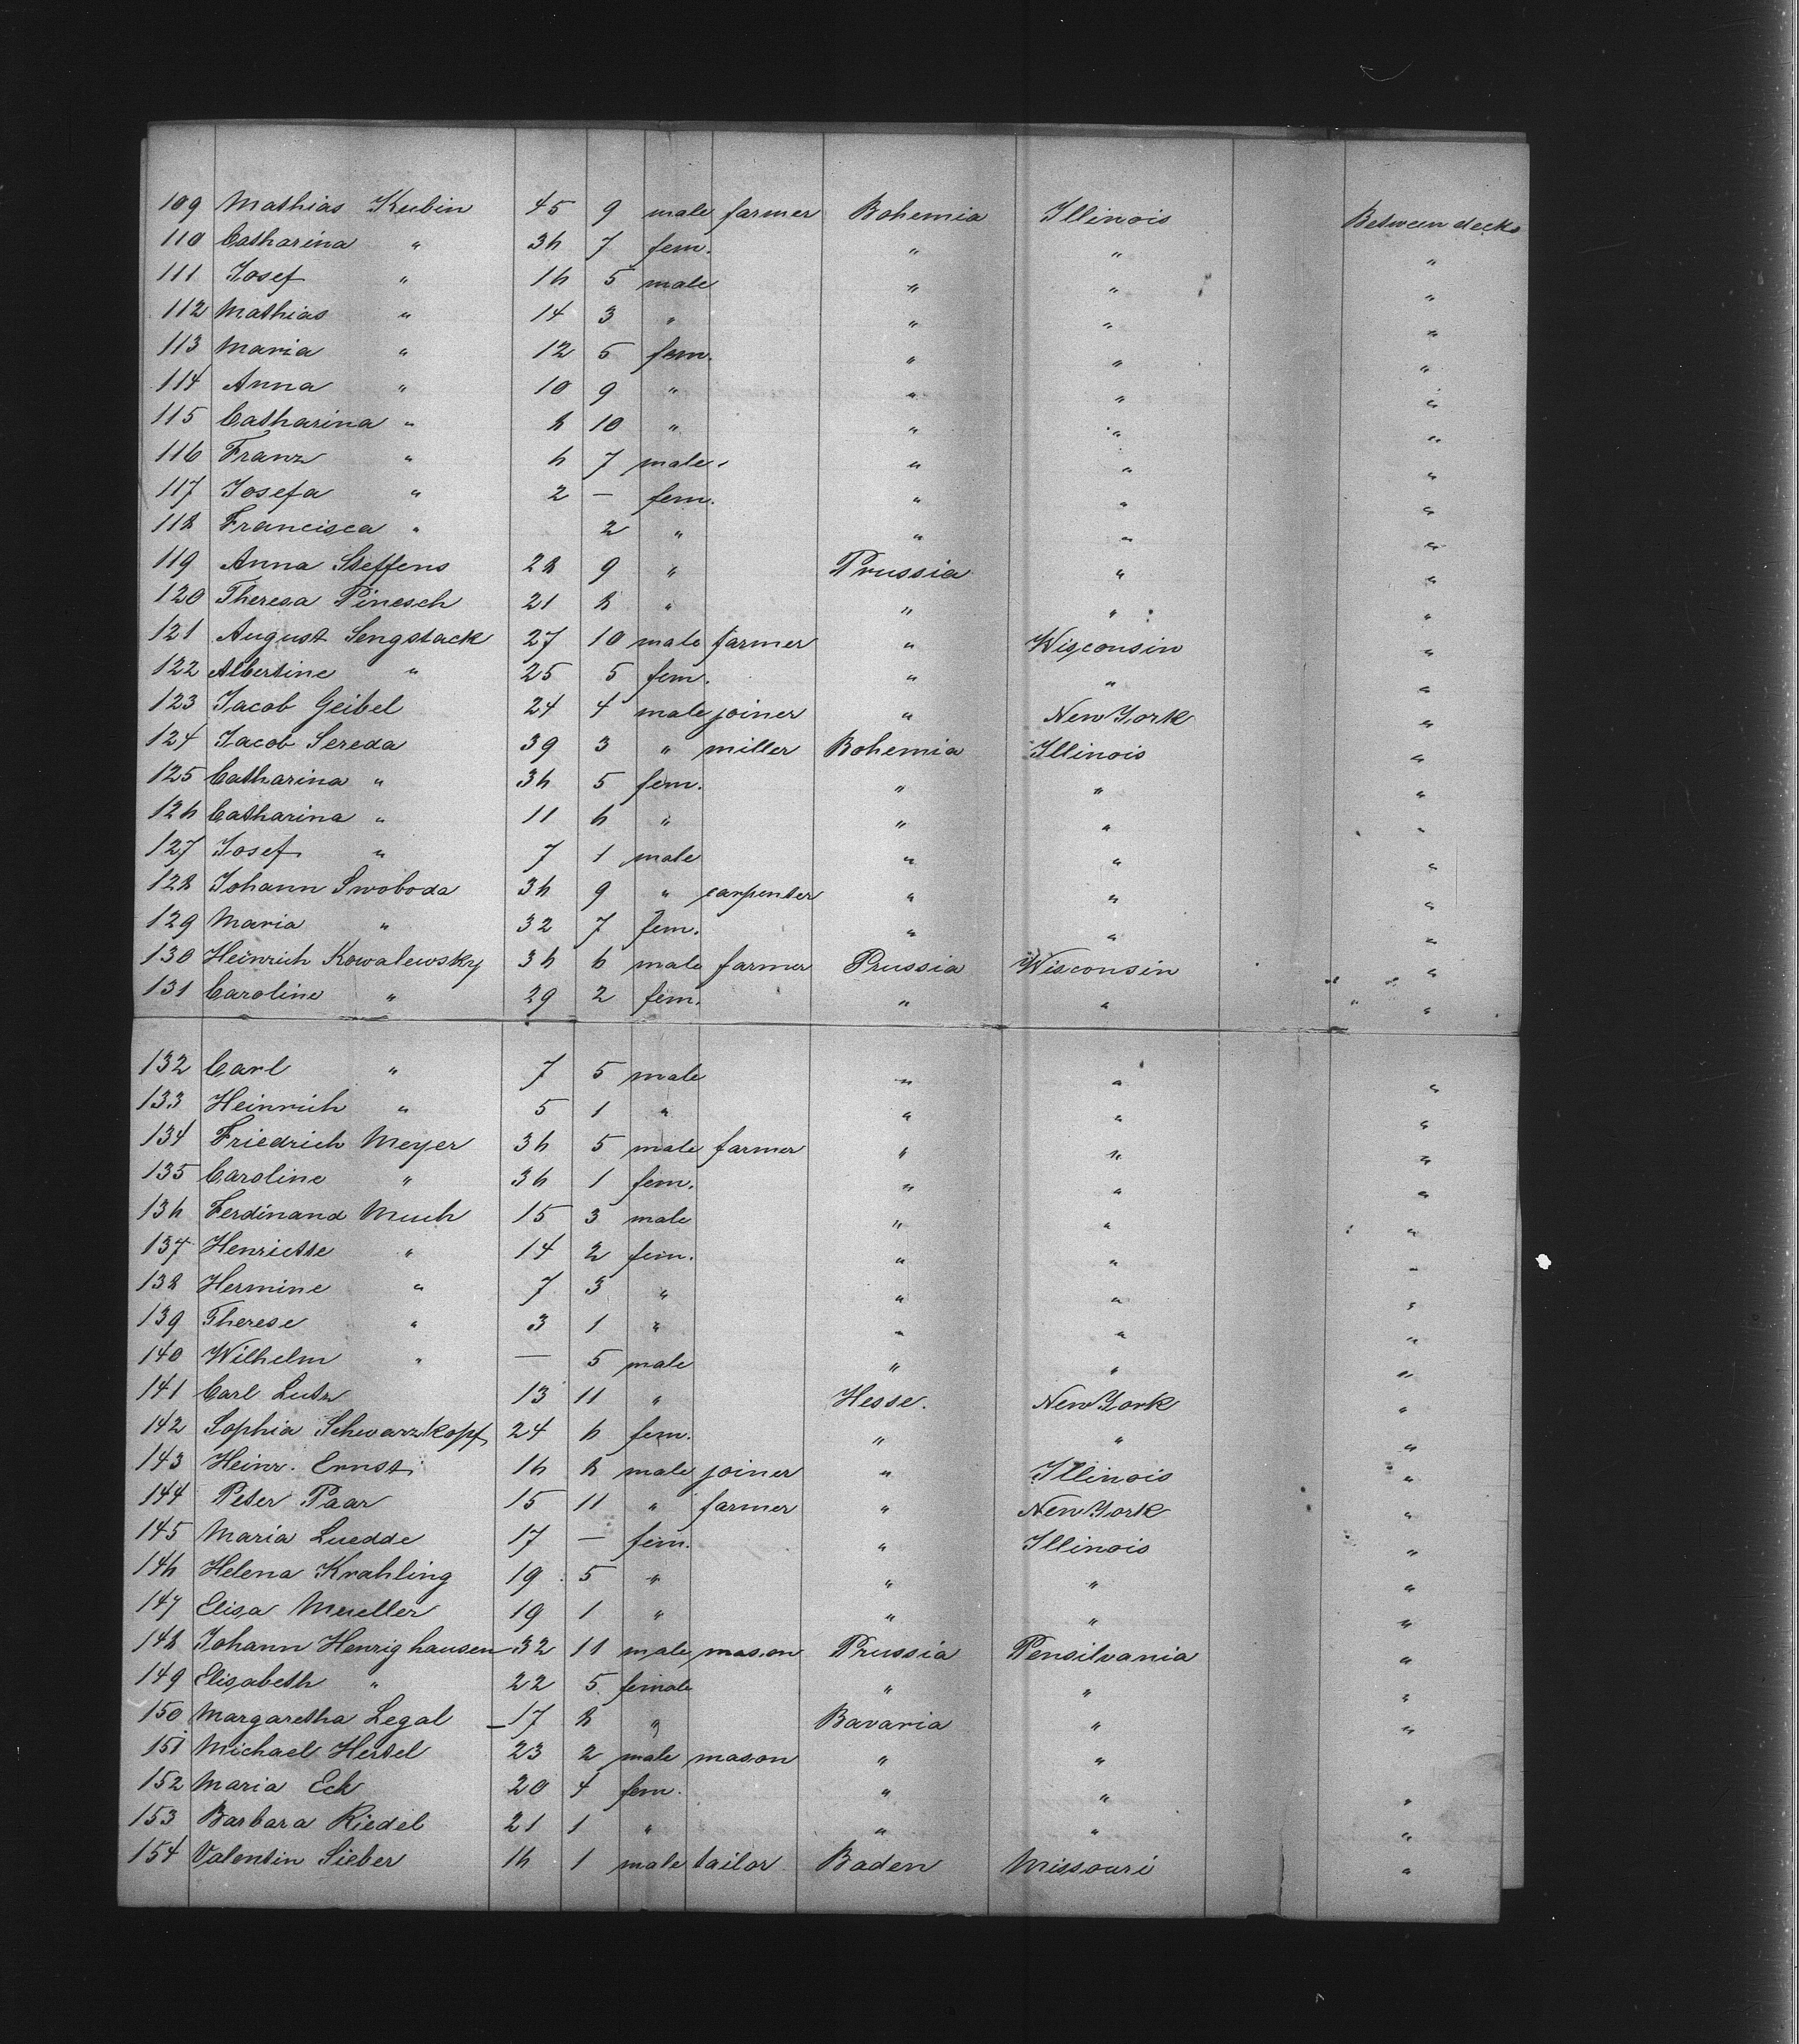 109 Mathias Kubin 45 9 male farmer Bohemia Illinois Between decks
110 Catharina " 36 7 fem. " " "
111 Josef " 16 5 male " " "
112 Mathias " 14 3 " " " "
113 Maria " 12 5 fem. " " "
114 Anna " 10 9 " " " "
115 Catharina " 8 10 " " " "
116 Franz " 6 7 male " " "
117 Josefa " 2 — fem. " " "
118 Francisca " 2 " " " "
119 Anna Steffens 28 9 " Prussia " "
120 Theresa Pinesch 21 8 " " " "
121 August Sengstack 27 10 male farmer " Wisconsin "
122 Albertine " 25 5 fem. " " "
123 Jacob Geibel 24 4 male joiner " New York "
124 Jacob Sereda 39 3 " miller Bohemia Illinois "
125 Catharina " 36 5 fem. " " "
126 Catharina " 11 6 " " " "
127 Josef " 7 1 male " " "
128 Johann Swoboda 36 9 " carpenter " " "
129 Maria " 32 7 fem. " " "
130 Heinrich Kowalewsky 36 6 male farmer Prussia Wisconsin "
131 Caroline " 29 2 fem. " " "
132 Carl " 7 5 male " " "
133 Heinrich " 5 1 " " " "
134 Friedrich Meyer 36 5 male farmer " " "
135 Caroline " 36 1 fem. " " "
136 Ferdinand Much 15 3 male " " "
137 Henriette " 14 2 fem. " " "
138 Hermine " 7 3 " " " "
139 Therese " 3 1 " " " "
140 Wilhelm " — 5 male " " "
141 Carl Lutz 13 11 " Hesse. New York "
142 Sophia Schwarzkopf 24 6 fem. " " "
143 Heinr. Ernst 16 8 male joiner " Illinois "
144 Peter Paar 15 11 " farmer " New York "
145 Maria Luedde 17 — fem. " Illinois "
146 Helena Krahling 19 5 " " " "
147 Elisa Mueller 19 1 " " " "
148 Johann Henrighausen 32 11 male mason Prussia Pensilvania "
149 Elisabeth " 22 5 female " " "
150 Margaretha Legal 17 8 " Bavaria " "
151 Michael Hertel 23 2 male mason " "
152 Maria Eck 20 4 fem. " " "
153 Barbara Riedel 21 1 " " " "
154 Valentin Sieber 16 1 male tailor Baden Missouri "